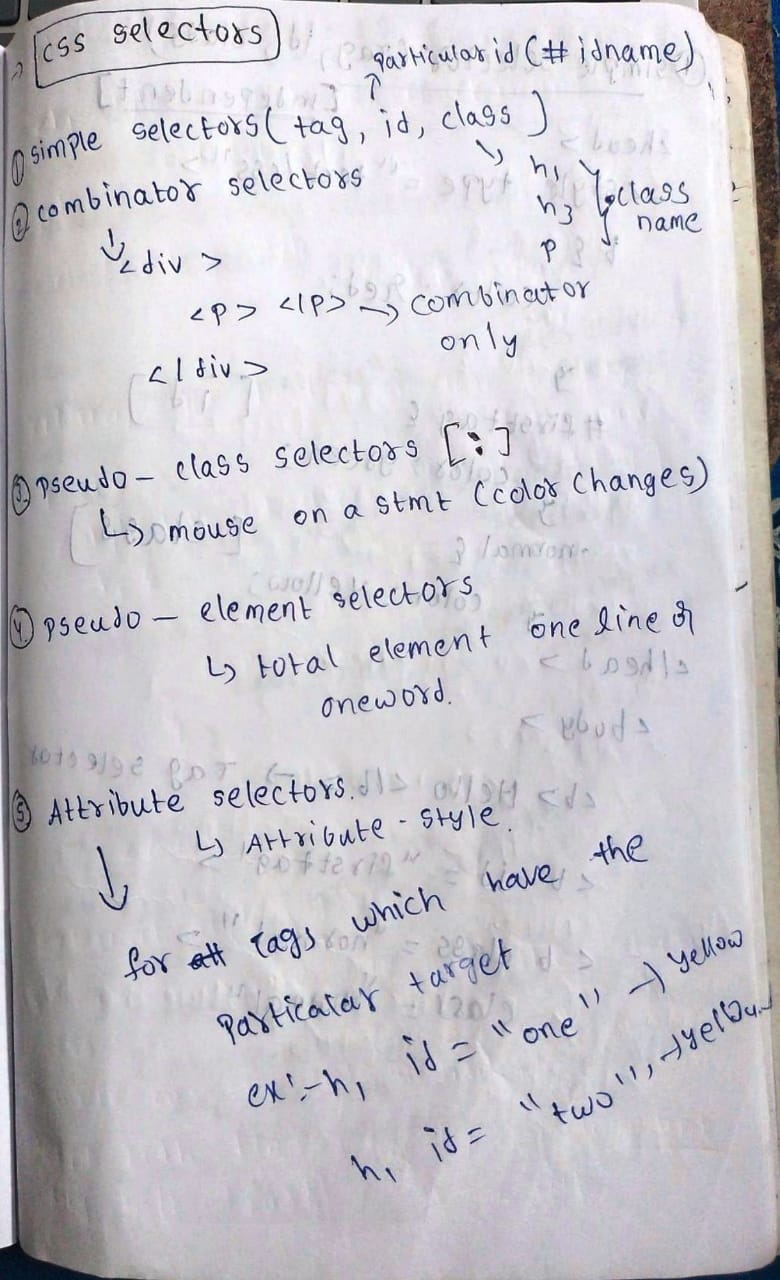 CSS selectors
particular id (# idname)
① simple selectors( tag, id, class )
h1
h3
p
class name
② combinator selectors
<div>
<p> </p> → combinator only
</div>
③ pseudo - class selectors [:]
↳ mouse on a stmt (color changes)
④ pseudo - element selectors
↳ total element one line or
oneword.
⑤ Attribute selectors.
↳ Attribute - style.
for tags which have the
Particular target
ex:- h1 id = "one" → yellow
h1 id = "two", → yellow